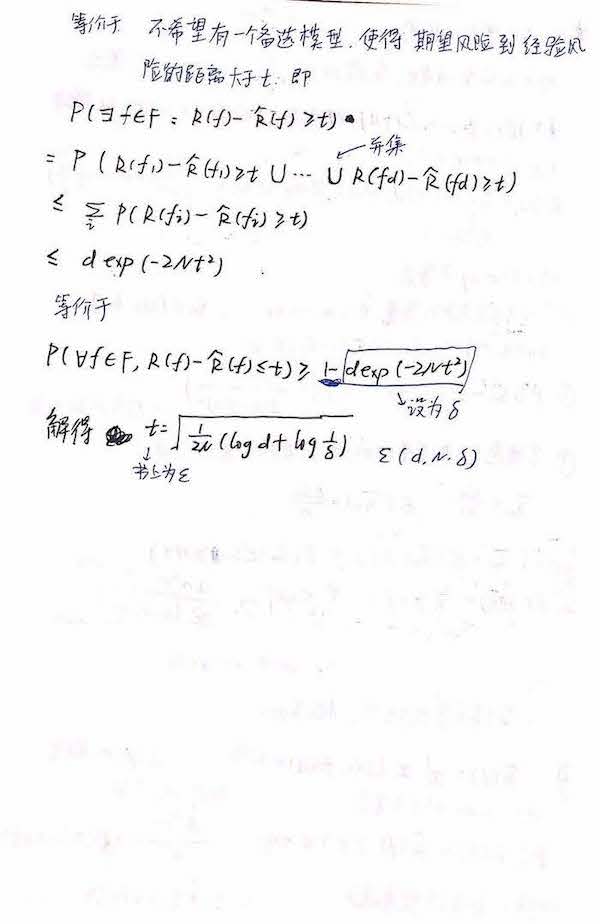 等价于 不希望有一个备选模型,使得 期望风险到经验风
险的距离大于t. 即
P(∃f∈F: R(f)-R̂(f)≥t)
并集
= P(R(f₁)-R̂(f₁)≥t ∪ ⋯ ∪ R(fd)-R̂(fd)≥t)
≤ ∑ᵢ P(R(fᵢ)-R̂(fᵢ)≥t)
≤ d exp(-2Nt²)
等价于
P(∀f∈F, R(f)-R̂(f)≤t) ≥ 1-dexp(-2Nt²)
→设为δ
解得 t=√(1/2N (log d+log 1/δ)) ε(d,N,δ)
书上为ε